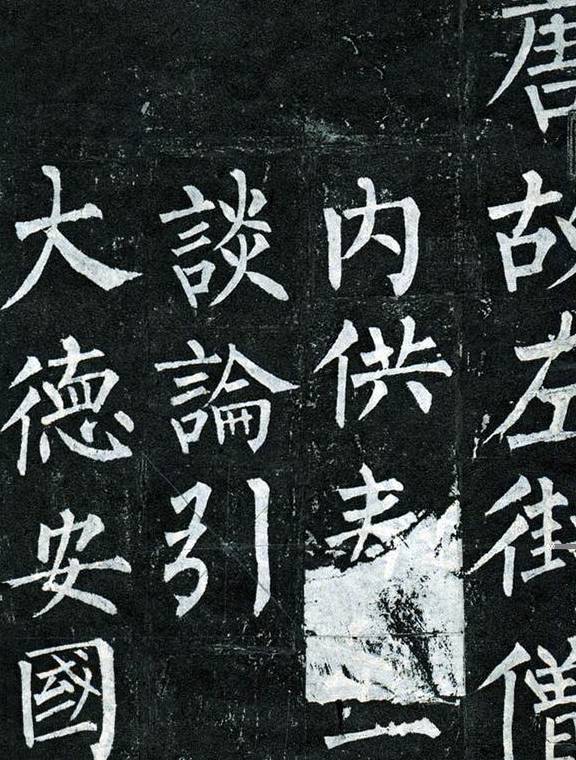 唐故左街僧
内供
談論引
大徳安國